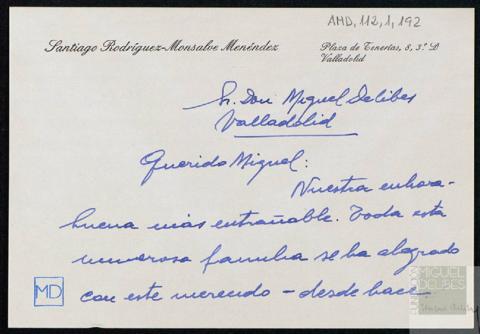 AMD, 112, 1, 192
Santiago Rodríguez-Monsalve Menéndez
Plaza de Tenerías, 8, 3.º D
Valladolid
Sr. Don Miguel Delibes
Valladolid
Querido Miguel:
Nuestra enhora-
buena más entrañable. Toda esta
numerosa familia se ha alegrado
con este merecido - desde hace
MD
FUNDACIÓN
MIGUEL
DELIBES